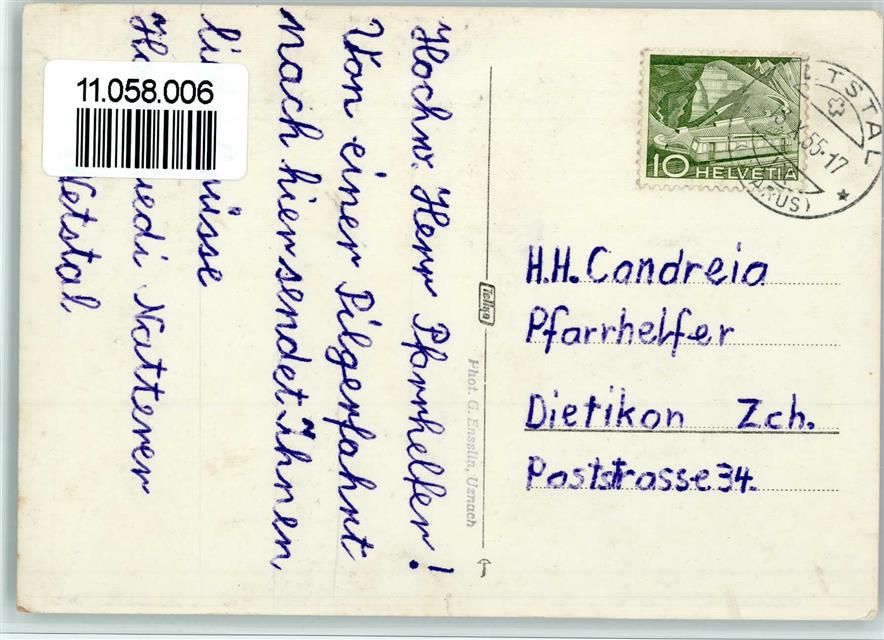 Hochw. Herr Pfarrhelfer!
Von einer Pilgerfahrt
nach hier sendet Ihnen,
Natterer
Netstal
11.058.006
Tellko
Phot. G. Ensslin, Uznach
10 HELVETIA
TSTAL
X.55-17
ARUS)
H.H. Candreia
Pfarrhelfer
Dietikon Zch.
Poststrasse 34.